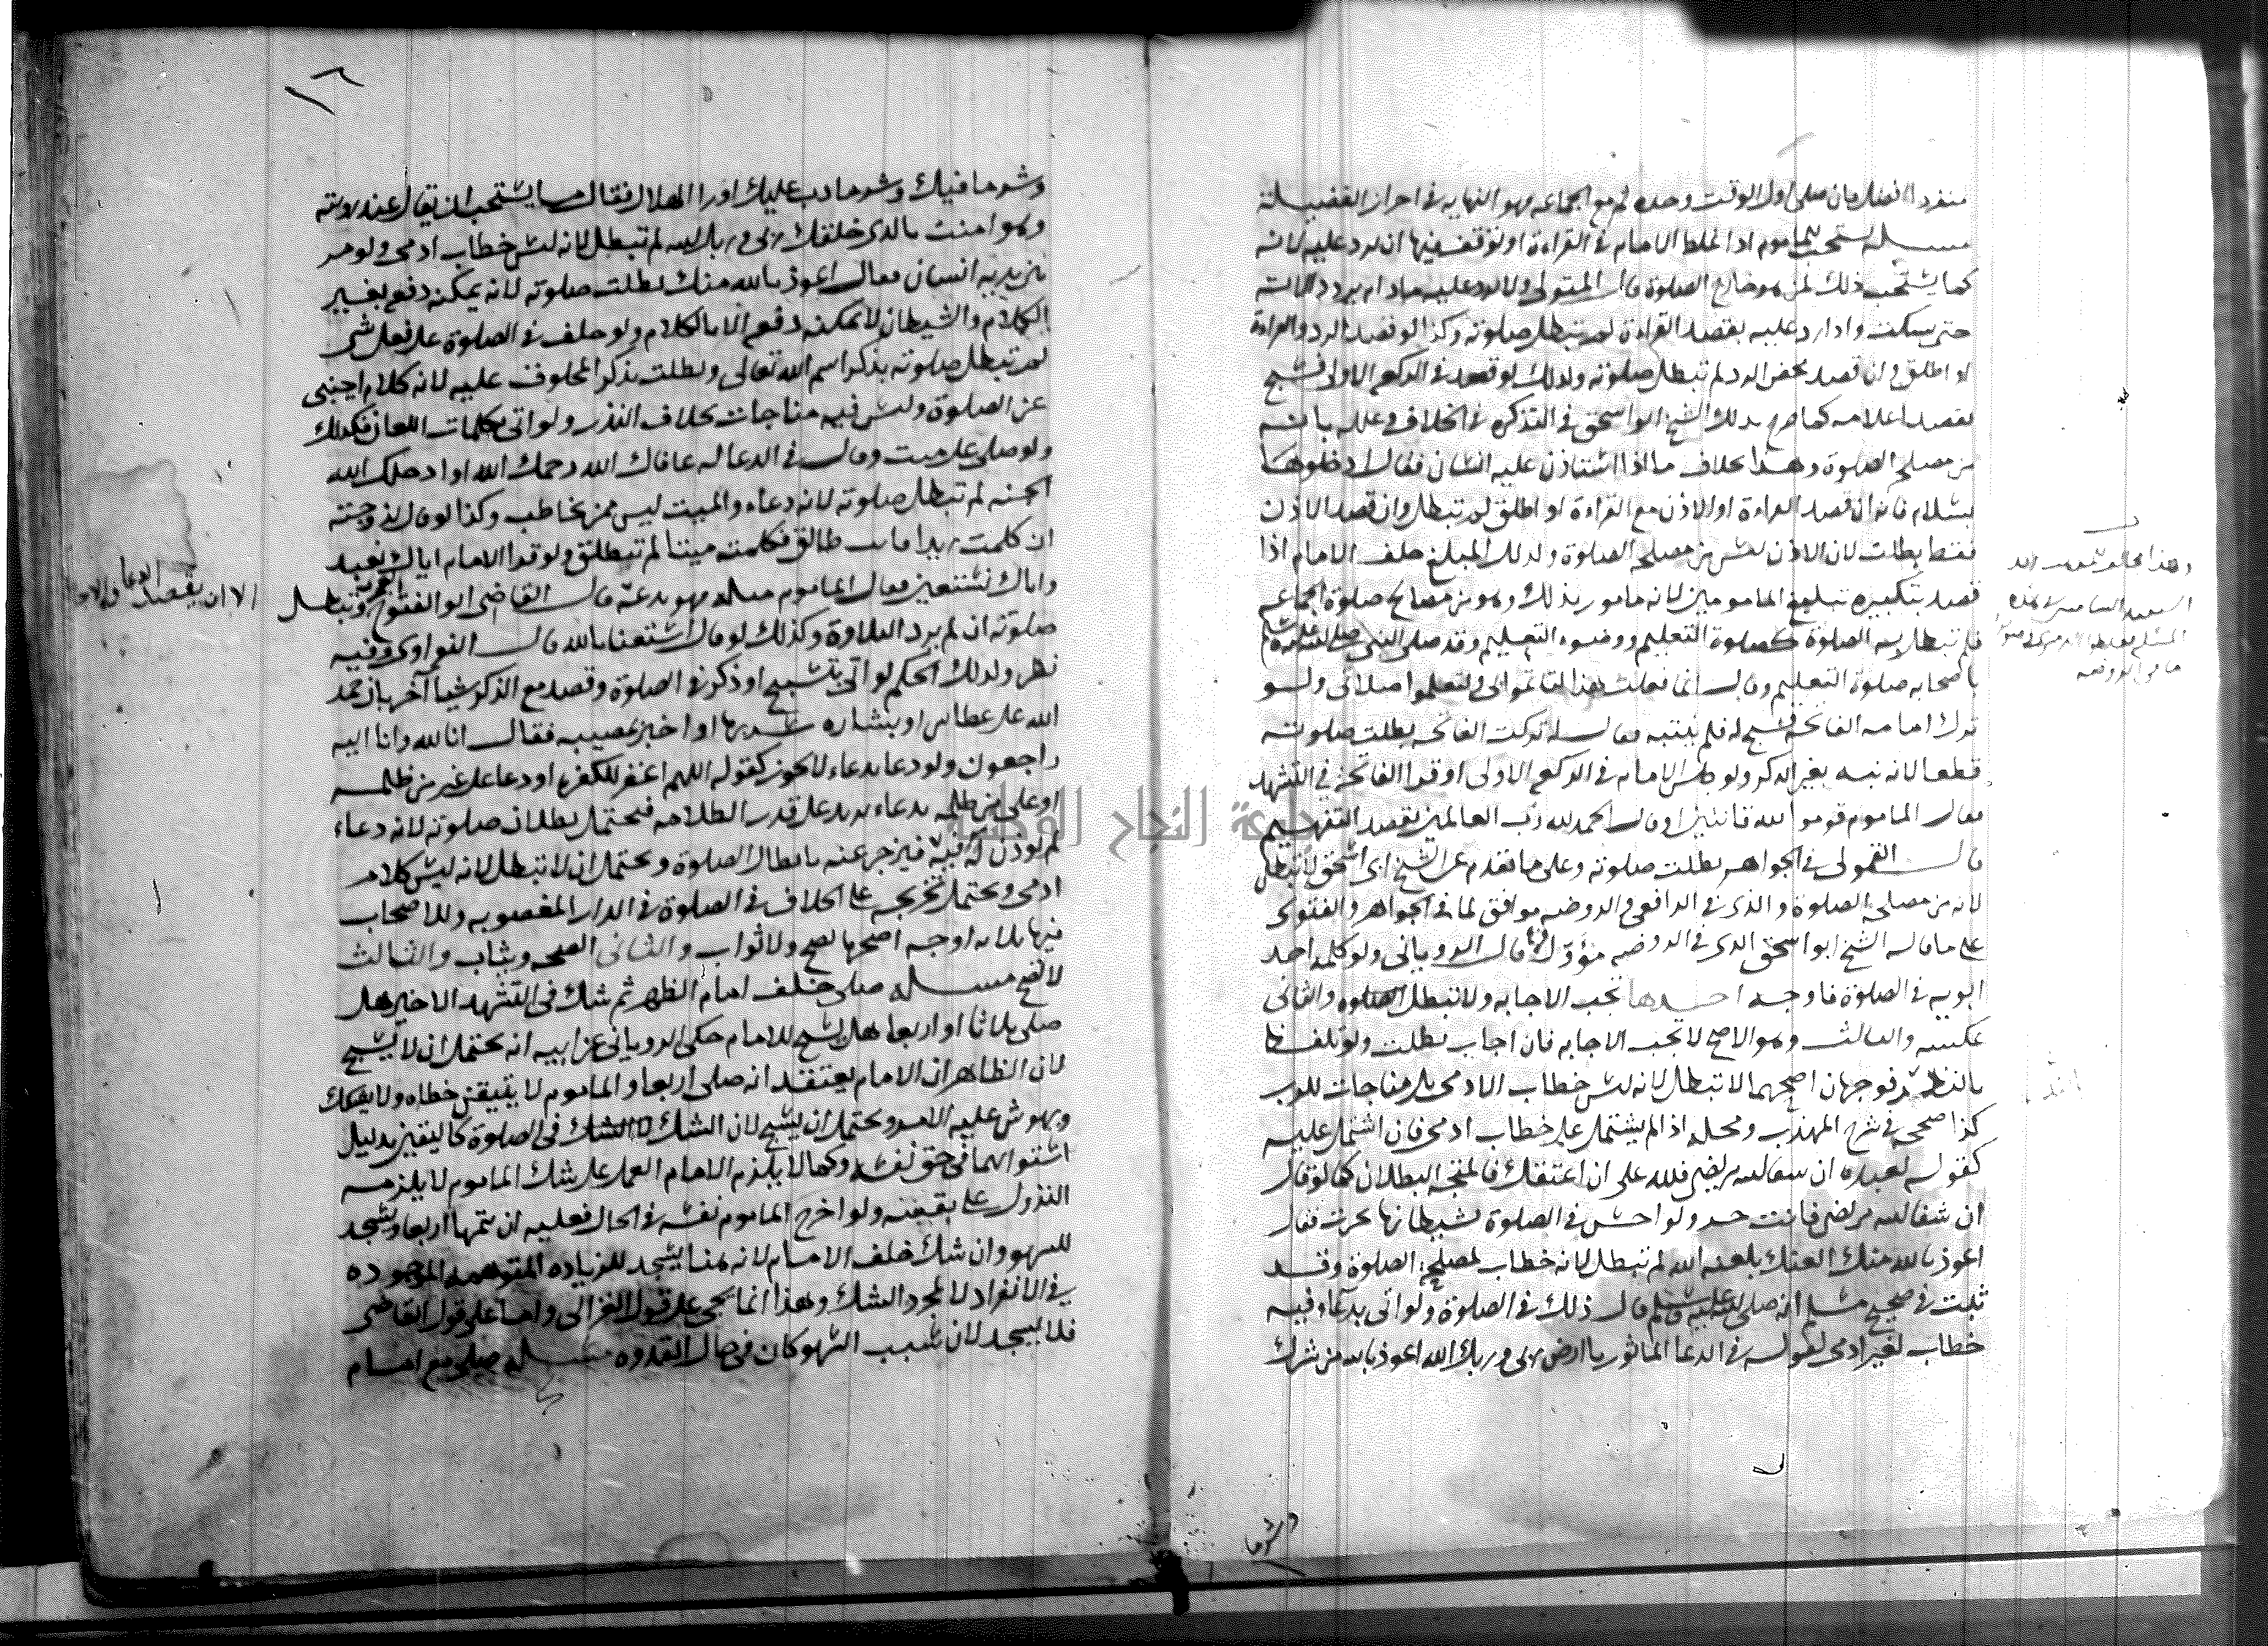 منفردا افضل فان صلى اول الوقت وحده ثم مع الجماعه فهو النهايه في احراز الفضيلة
مسله يستحب للماموم اذا غلط الامام في القراءة او توقف فيها ان يرد عليه لانه
كما يستحب ذلك لمن هو خارج الصلوة قال المتولي ولا يرد عليه مادام يردد الاية
حتى يسكت واذا رد عليه بقصد القراءة لم تبطل صلوته وكذا لو قصد الرد والقراءة
او اطلق وان قصد محض الرد لم تبطل صلوته وكذلك لو قعد في الركعه الاولى فسبح
بقصد اعلامه كما صرح بذلك الشيخ ابو اسحق في التذكرة في الخلاف وعلله بانه
من مصلحة الصلوة وهذا بخلاف ما اذا استاذن عليه انسان فقال ادخلوها
بسلام فانه ان قصد القراءة او الاذن مع القراءة او اطلق لم تبطل وان قصد الاذن
فقط بطلت لان الاذن ليس من مصلحة الصلوة وكذلك المبلغ خلف الامام اذا
قصد بتكبيره تبليغ المامومين لانه مامور بذلك وهو من مصالح صلوة الجماعه
فلم تبطل به الصلوة كصلوة التعليم ووضوء التعليم وقد صلى النبي صلى الله عليه وسلم
باصحابه صلوة التعليم وقال انما فعلت هذا لتاتموا بي ولتعلموا صلاتي ولو
ترك امامه الفاتحه فسبح له فلم ينتبه فقال له تركت الفاتحه بطلت صلوته
قطعا لانه نبه بغير الذكر ولو جلس الامام في الركعه الاولى او قرا الفاتحة في التشهد
فقال الماموم قوموا لله قانتين او قال الحمد لله رب العالمين بقصد التفهيم
قال القمولي في الجواهر بطلت صلوته وعلى ما تقدم عن الشيخ ابي اسحق لا تبطل
لانه من مصلحة الصلوة والذي في الرافعي والروضه موافق لما في الجواهر والفتوى
على ما قاله الشيخ ابو اسحق الذي في الروضه مؤول قال الروياني ولو كلمه احد
ابويه في الصلوة فاوجه احدها تجب الاجابه ولا تبطل الصلوة والثاني
عكسه والثالث وهو الاصح لا تجب الاجابه فان اجاب بطلت ولو تلفظ
بالنذر فوجهان اصحهما لا تبطل لانه ليس خطاب الادمي بل مناجات للرب
كذا صححه في شرح المهذب ومحله اذا لم يشتمل على خطاب ادمي فان اشتمل عليه
كقوله لعبده ان شفا الله مريضي فلله على ان اعتقك فالمتجه البطلان كما لو قال
ان شفا الله مريضي فانت حر ولو احس في الصلوة بشيطان فقال
اعوذ بالله منك العنك بلعنه الله لم تبطل لانه خطاب لمصلحة الصلوة وقد
ثبت في صحيح مسلم انه صلى الله عليه وسلم قال ذلك في الصلوة ولو اتى بدعاء فيه
خطاب لغير ادمي كقوله في الدعا الماثور يا ارض ربي وربك الله اعوذ بالله من شرك
وشر ما
وشر ما فيك وشر ما دب عليك او راا الهلال فقال ما يستحب ان يقال عند رويته
وهو امنت بالذي خلقك ربي وربك الله لم تبطل لانه ليس خطاب ادمي ولو مر
بين يديه انسان فقال اعوذ بالله منك بطلت صلوته لانه يمكنه دفعه بغير
الكلام والشيطان لا يمكنه دفعه الا بالكلام ولو حلف في الصلوة على فعل شي
لم تبطل صلوته بذكر اسم الله تعالى وبطلت بذكر المحلوف عليه لانه كلام اجنبي
عن الصلوة وليس فيه مناجات بخلاف النذر ولو اتى بكلمات اللعان فكذلك
ولو صلى على ميت وقال في الدعا له عافاك الله رحمك الله او ادخلك الله
الجنه لم تبطل صلوته لانه دعاء والميت ليس ممن يخاطب وكذا لو قال لزوجته
ان كلمت زيدا فانت طالق فكلمته ميتا لم تطلق ولو قرا الامام اياك نعبد
واياك نستعين فقال الماموم مثله فهو بدعة قال القاضي ابو الفتوح وتبطل
الا ان يقصد الدعا
صلوته ان لم يرد التلاوة وكذلك لو قال استعنا بالله قال النواوي وفيه
نظر وكذلك الحكم لو اتى بتسبيح او ذكر في الصلوة وقصد مع الذكر شيا آخر بان حمد
الله على عطاس او بشاره بشر بها او اخبر بمصيبه فقال انا لله وانا اليه
راجعون ولو دعا بدعاء لا يجوز كقوله اللهم اغفر للكفرة او دعا على غير من ظلمه
او على من ظلمه بدعاء يزيد على قدر الظلامه فيحتمل بطلان صلوته لانه دعاء
لم يؤذن له فيه فيزجر عنه بابطال الصلوة ويحتمل ان لا تبطل لانه ليس كلام
ادمي ويحتمل تخريجه على الخلاف في الصلوة في الدار المغصوبه وللاصحاب
فيها ثلاثه اوجه اصحها تصح ولا ثواب والثاني الصحه ويثاب والثالث
لا تصح مسله صلى خلف امام الظهر ثم شك في التشهد الاخير هل
صلى ثلاثا او اربعا هل يسبح للامام حكى الروياني عن ابيه انه يحتمل ان لا يسبح
لان الظاهر ان الامام يعتقد انه صلى اربعا والماموم لا يتيقن خطاه ولا يشكك
ويهوش عليه الامر ويحتمل ان يسبح لان الشك في الصلوة كاليقين بدليل
استوائهما في حق نفسه وكما لا يلزم الامام العمل على شك الماموم لا يلزمه
النزول على يقينه ولو اخرج الماموم نفسه في الحال فعليه ان يتمها اربعا ويسجد
للسهو وان شك خلف الامام لانه هنا يسجد للزياده المتوهمه الموجوده
في الانفراد لا لمجرد الشك وهذا انما يجي على قول الغزالي واما على قول القاضي
فلا يسجد لان سبب السهو كان في حال القدوه مسله صلى مع امام